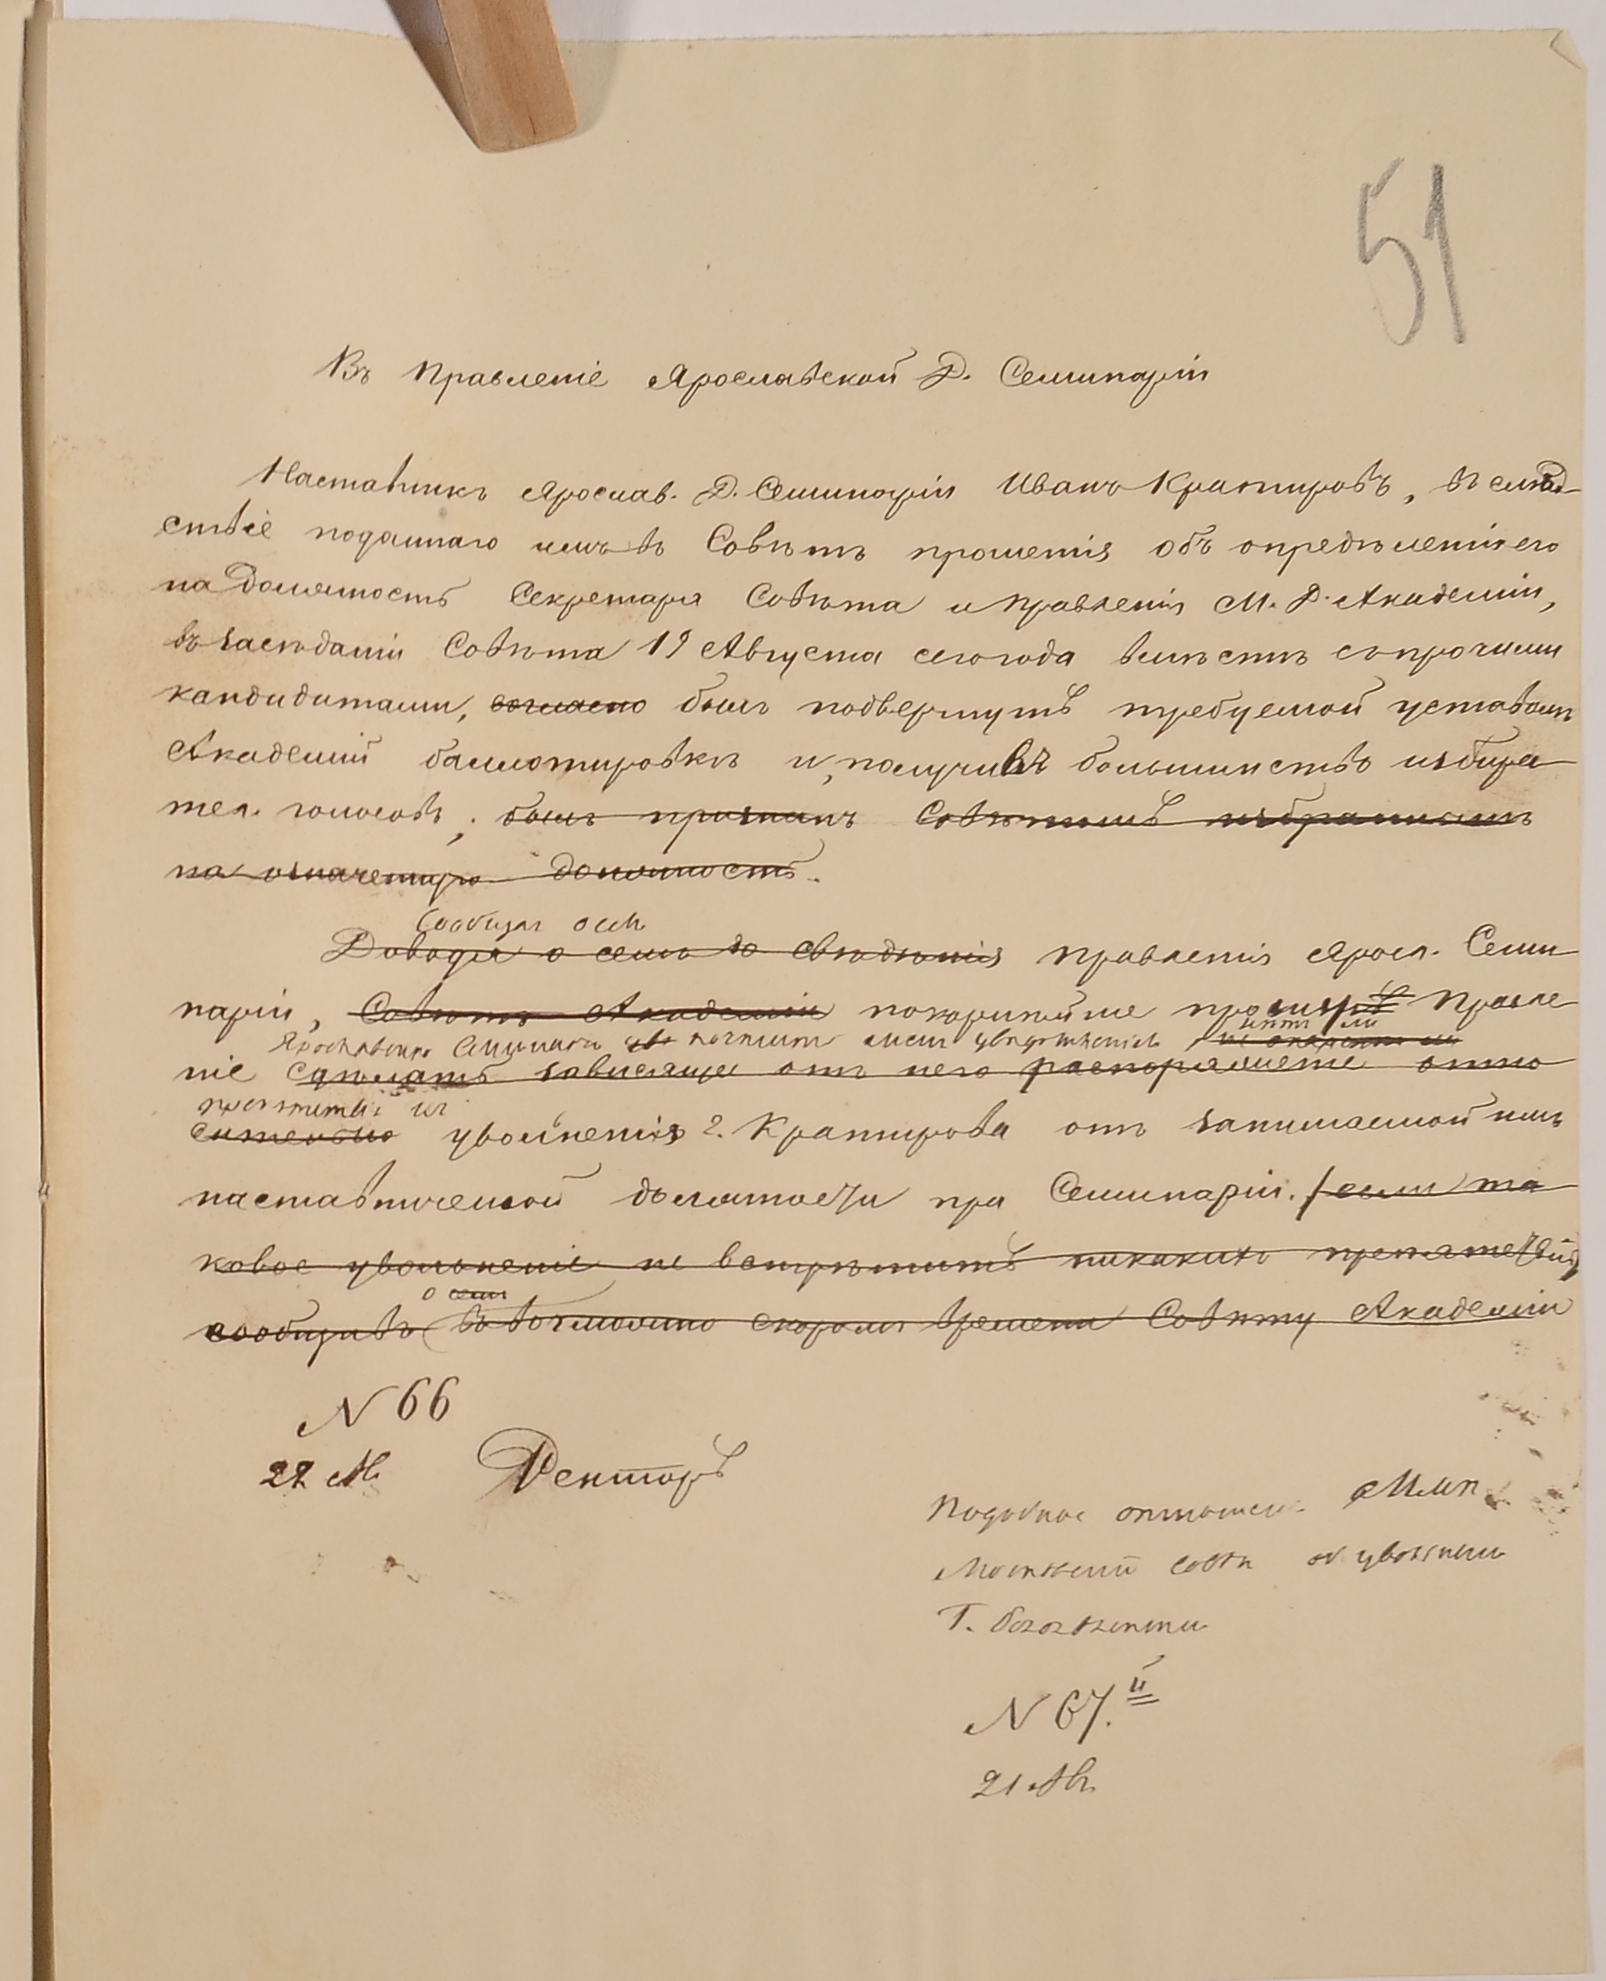 51
Въ Правленіе Ярославской Д. Семинаріи
Наставникъ Ярослав. Д. Семинаріи Иванъ Кратировъ, въ слѣд
ствіе поданнаго имъ въ Совѣтъ прошенія объ опредѣленіи его
на должность Секретаря Совѣта и Правленія М. Д. Академіи,
въ засѣданіи Совѣта 19 Августа сего года вмѣстѣ съ прочими
кандидатами, согласно былъ подвергнутъ требуемой уставомъ
Академій баллотировкѣ и, получивъ большинство избира
тел. голосовъ, былъ признанъ Совѣтомъ избраннымъ
на означенную должность.
Сообщая о семъ
Доводя о семъ до свѣдѣнія Правленія Яросл. Семи
наріи, Совѣтъ Академіи покорнѣйше проситъ Правле
Ярославской Семинаріи почтить меня увѣдомленіемъ нѣтъ ли
ніе сдѣлать зависящее отъ него распоряженіе отно
препятствій къ
сительно увольненія г. Кратирова отъ занимаемой имъ
наставнической должности при Семинаріи. если та
ковое увольненіе не встрѣтитъ никакихъ препятствій,
о семъ
сообщивъ въ возможно скоромъ времени Совѣту Академіи
N 66
22 Ав. Ректоръ
Подобное отношен.
Московской об увольнении
Г.
N 67.й
21 Ав.